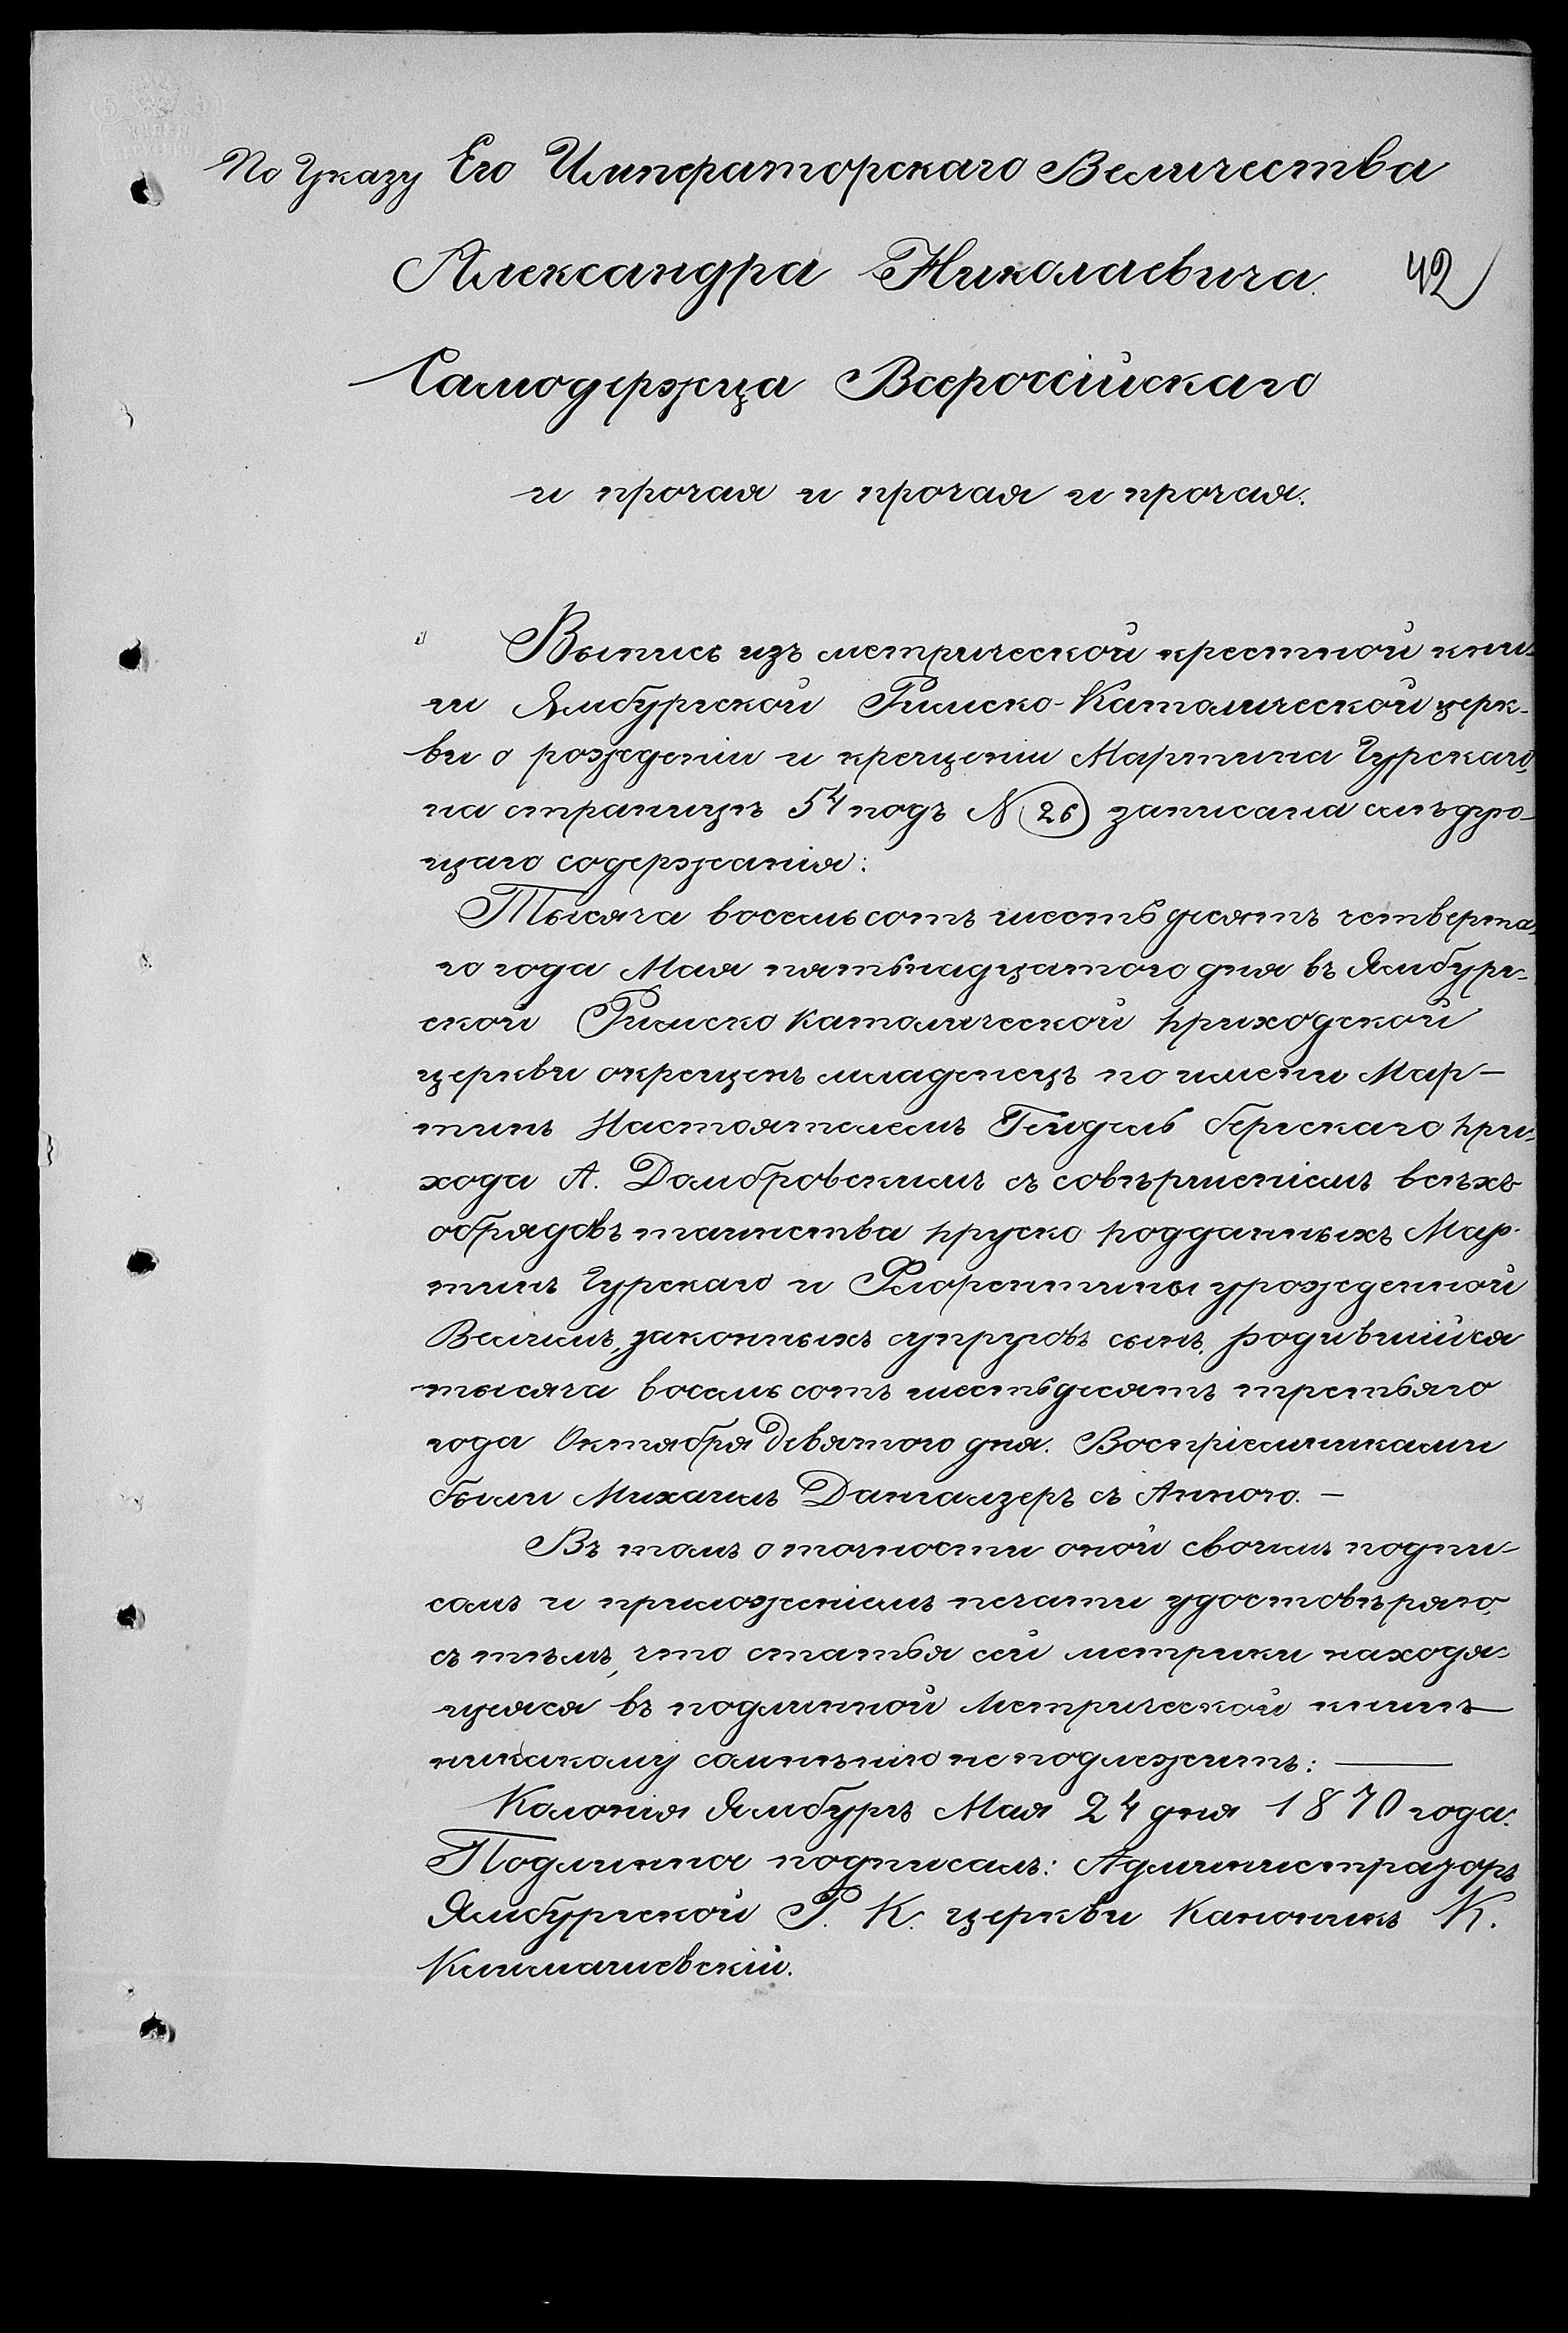 По Указу Его Императорскаго Величества
Александра Николаевича.
42
Самодержца Всероссійскаго
и прочая и прочая и прочая.
Выпись изъ метрической крестной кни-
ги Ямбургской Римско-Католической церк-
ви о рожденіи и крещеніи Мартина Гурскаго,
на страницѣ 54 подъ N 26 записана слѣдую-
щаго содержанія:
Тысяча восемьсотъ шестьдесятъ четверта-
го года Мая пятьнадцатого дня въ Ямбург-
ской Римско Католической приходской
церкви окрещенъ младенецъ по имени Мар-
тинъ Настоятелемъ Гейдельбергскаго при-
хода А. Домбровскимъ съ совѣршеніемъ всѣхъ
обрядовъ таинства пруско подданныхъ Мар-
тинъ Гурскаго и Флорентины урожденной
законныхъ супруговъ сынъ, родившійся
тысяча восемьсотъ шестьдесятъ третьяго
года Октября девятого дня. Воспріемниками
были Михаилъ съ Анною. —
Въ томъ о точности оной своимъ подпи-
сомъ и приложеніемъ печати удостовѣряю,
съ тѣмъ, что статья сей метрики находя-
щеяся въ подлинной Метрической книгѣ
никакому сомнѣнію не подлежитъ: —
Колонія Ямбургъ Мая 24 дня 1870 года.
Подлинно подписалъ: Администраторъ
Ямбургской Р. К. церкви Каноникъ К.